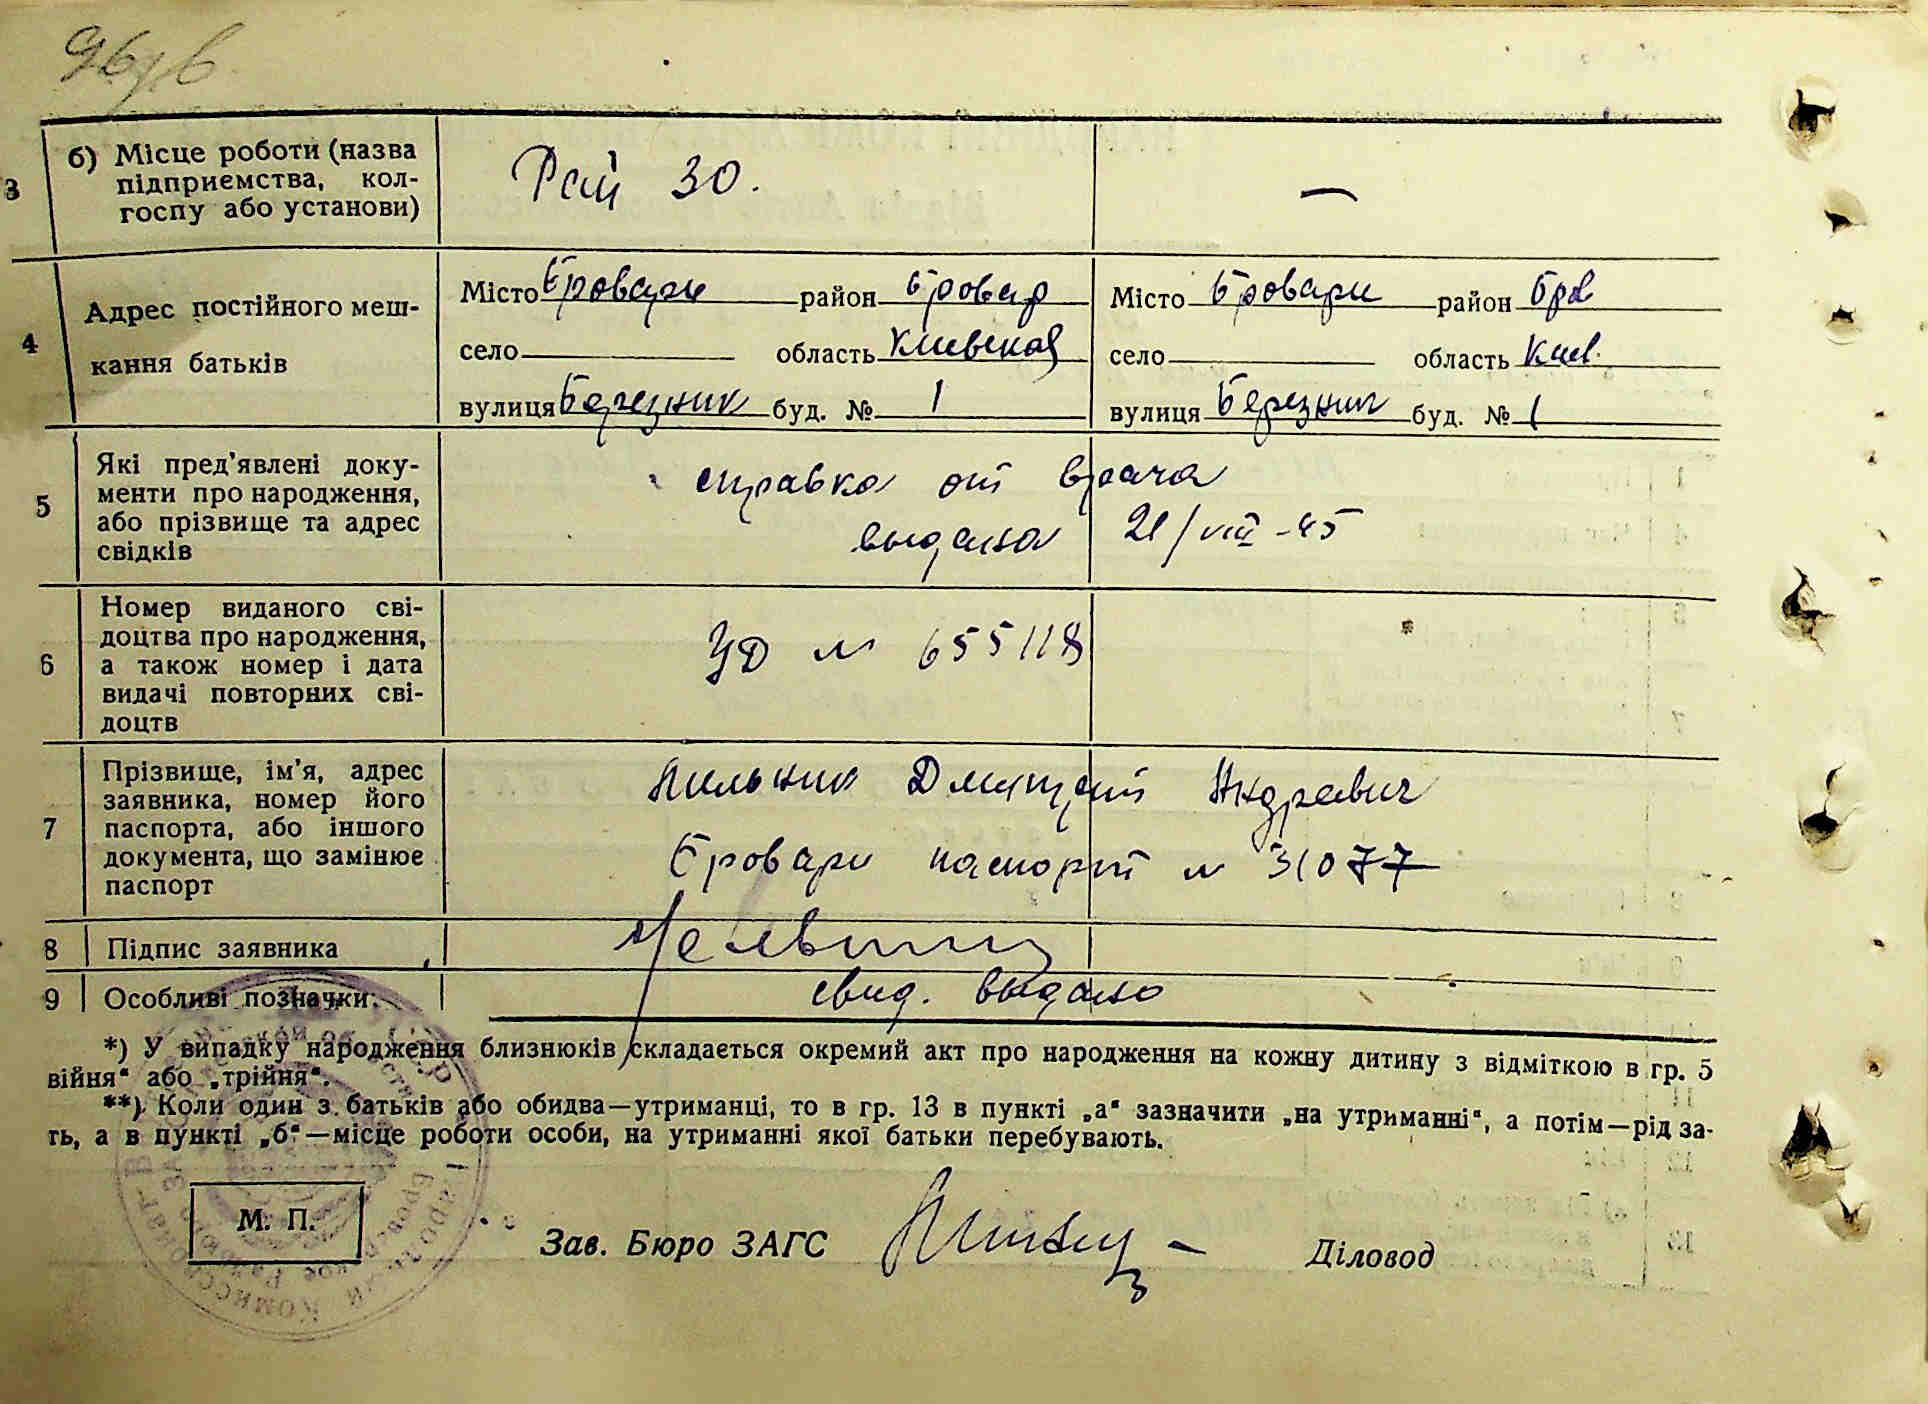 3
б) Місце роботи (назва
підприємства, кол-
госпу або установи)
Рай ЗО.
—
4
Адрес постійного меш-
кання батьків
Місто Бровари район Бровар
село область Киевская
вулиця Березник буд. № 1
Місто Бровари район Бров
село область Киев.
вулиця Березник буд. № 1
5
Які пред'явлені доку-
менти про народження,
або прізвище та адрес
свідків
справка от врача
выдана 21/VIII-45
6
Номер виданого сві-
доцтва про народження,
а також номер і дата
видачі повторних сві-
доцтв
УД № 655118
7
Прізвище, ім'я, адрес
заявника, номер його
паспорта, або іншого
документа, що замінює
паспорт
Дмитрий Андревич
Бровари паспорт № 31077
8
Підпис заявника
9
Особливі позначки:
свид. выдано
*) У випадку народження близнюків складається окремий акт про народження на кожну дитину з відміткою в гр. 5
війня" або „трійня".
**) Коли один з батьків або обидва—утриманці, то в гр. 13 в пункті „а" зазначити „на утриманні", а потім—рід за-
ть, а в пункті „б"—місце роботи особи, на утриманні якої батьки перебувають.
М. П.
Зав. Бюро ЗАГС
Діловод